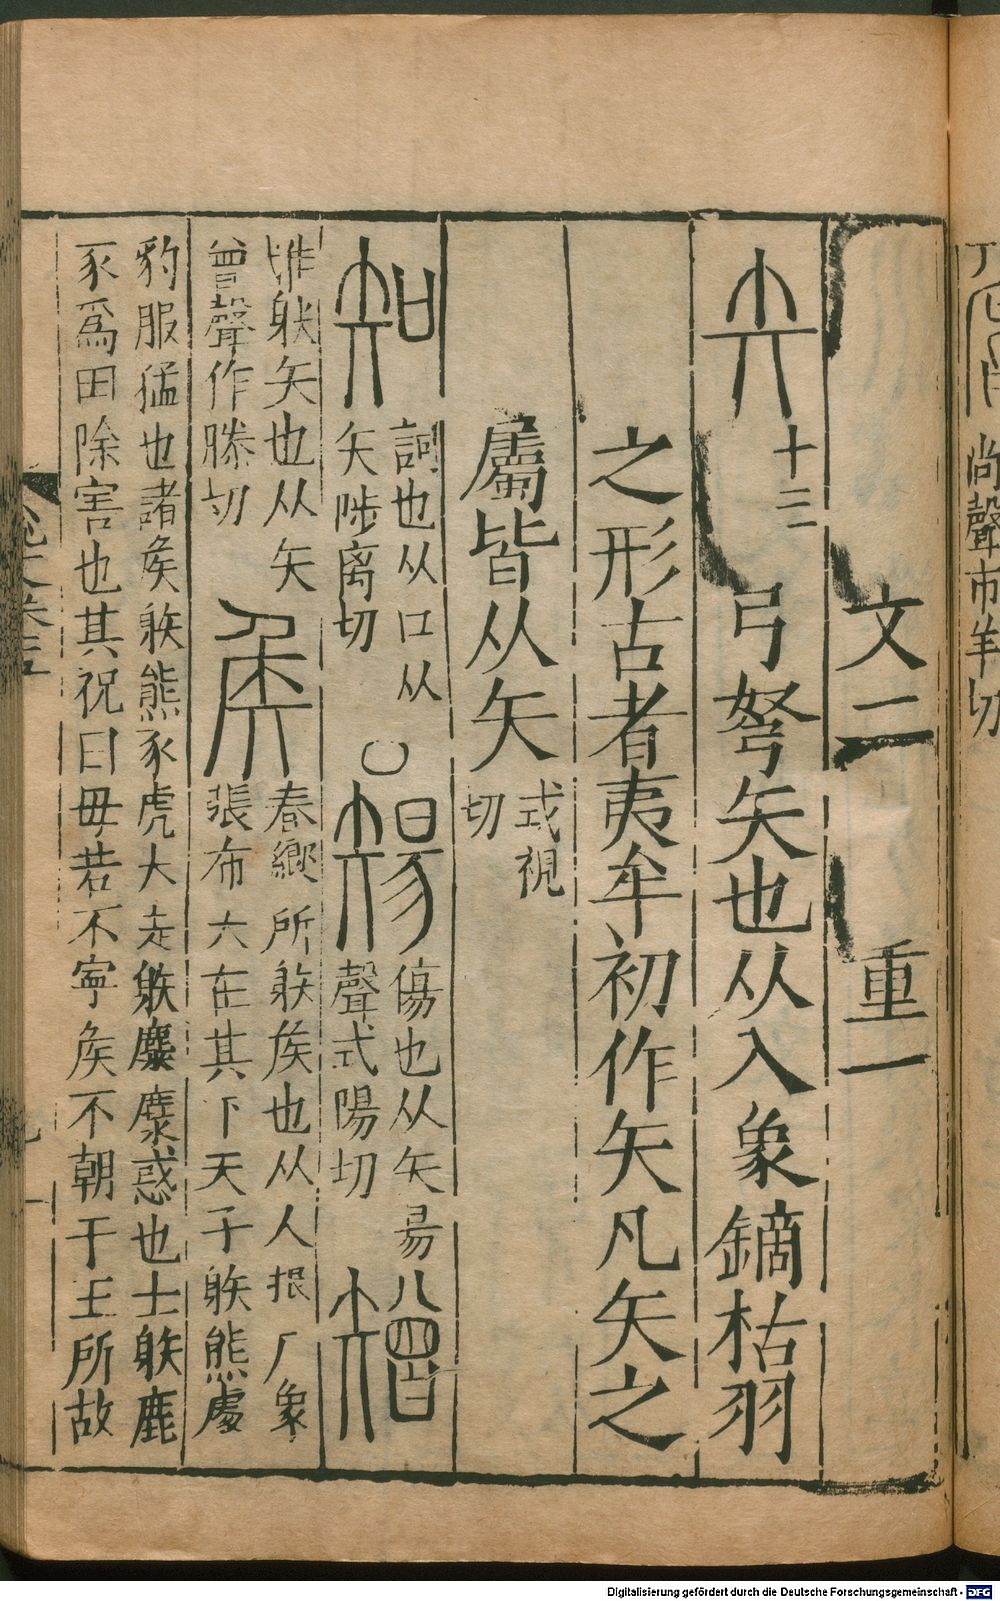 尚聲市羊切
文二 重一
矢 十三 弓弩矢也从入象鏑枯羽
之形古者夷牟初作矢凡矢之
屬皆从矢 式視
切
知 詞也从口从
矢陟离切
煬 傷也从矢昜
聲式陽切
矰
惟䠶矢也从矢
曾聲作滕切
矦 春鄉所䠶矦也从人厂象
張布六在其下天子䠶熊處
豹服猛也諸矦䠶熊豕虎大走䠶麋麋惑也士䠶鹿
豕爲田除害也其祝曰毋若不寧矦不朝于王所故
Digitalisierung gefördert durch die Deutsche Forschungsgemeinschaft - DFG